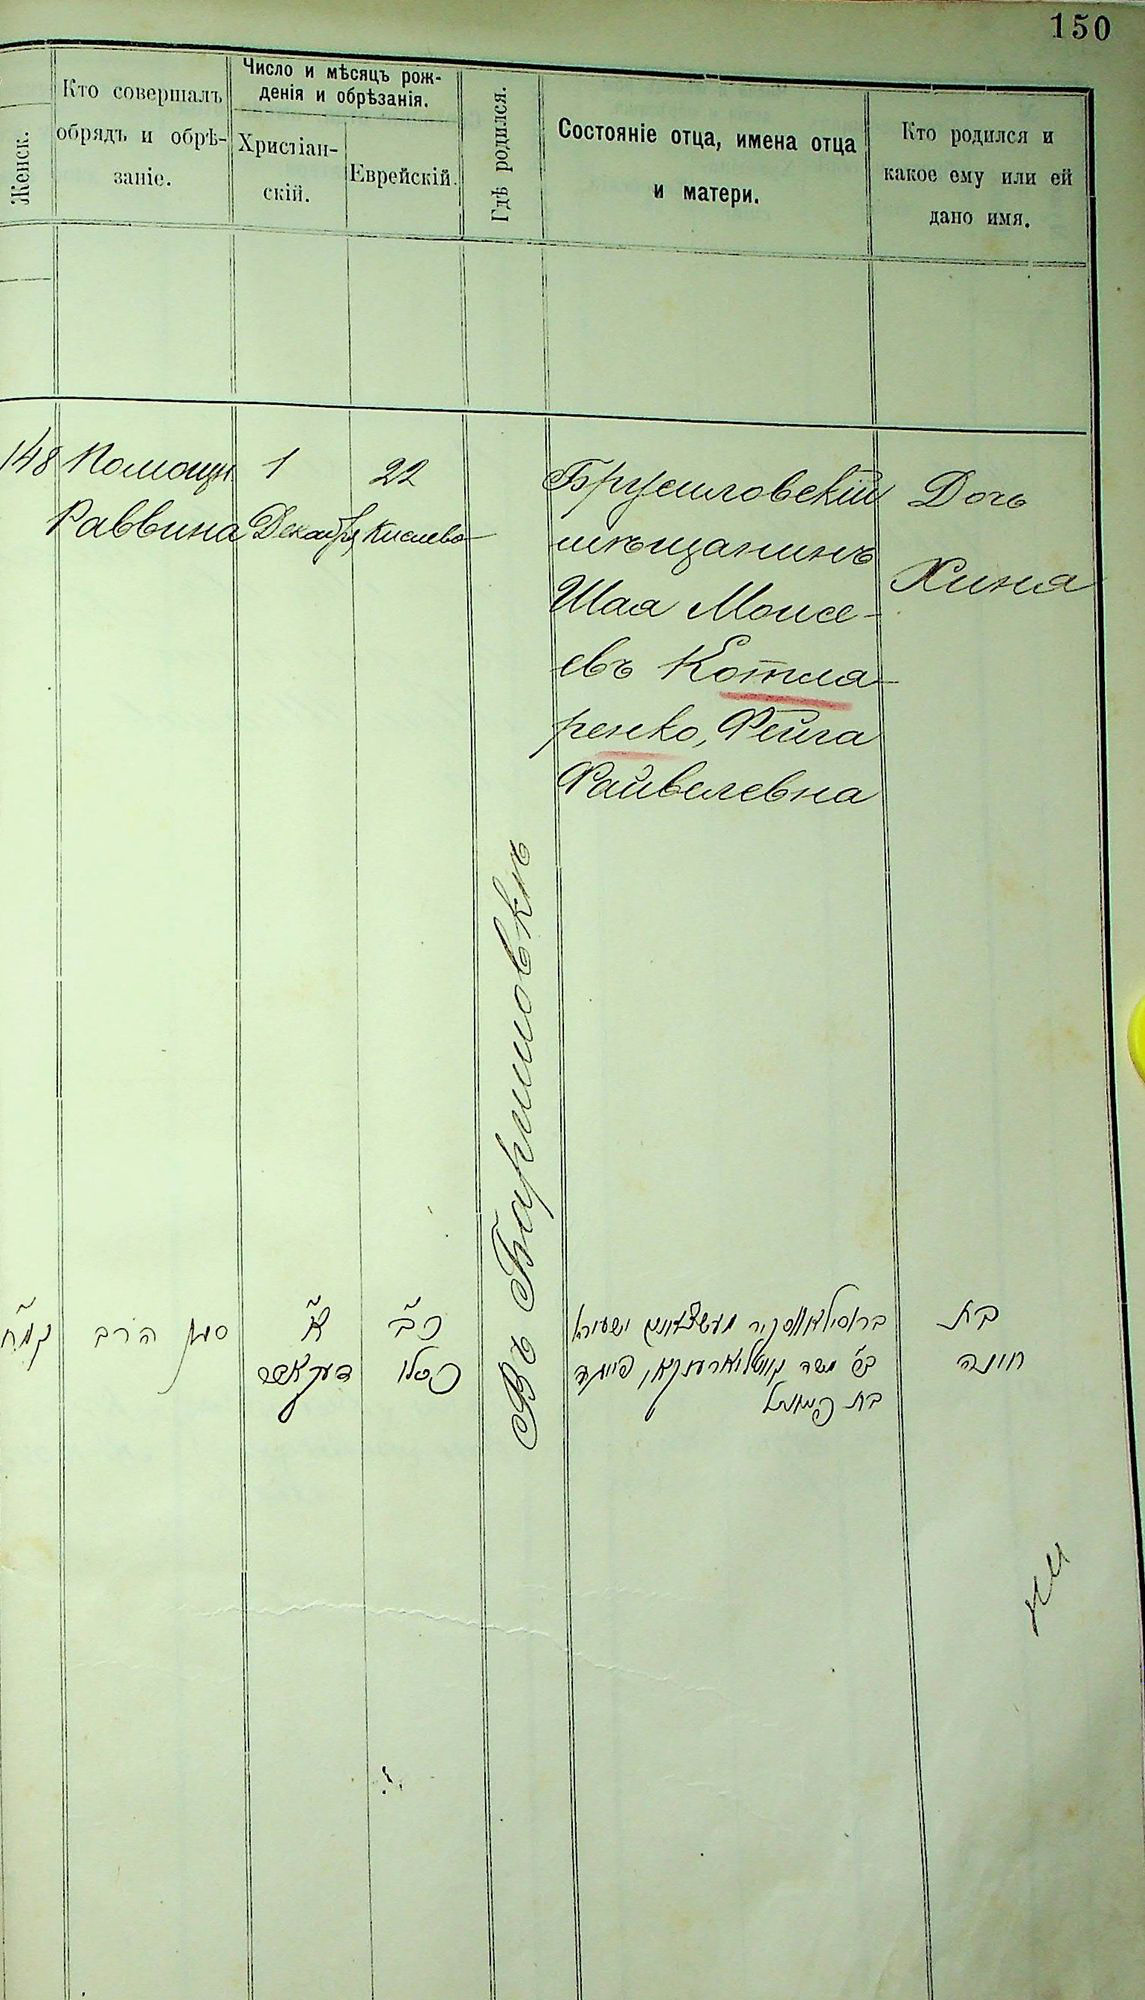 150
Женск.
Кто совершалъ
обрядъ и обрѣ-
заніе.
Число и мѣсяцъ рож-
денія и обрѣзанія.
Христіан-
скій.
Еврейскій.
Гдѣ родился.
Состояніе отца, имена отца
и матери.
Кто родился и
какое ему или ей
дано имя.
148
Помощн
Раввина
1
Декабря
22
Кислева
Въ Барышовкѣ
Брусиловскій
мѣщанинъ
Шая Моисе-
евъ Котля-
ренко, Фейга
Файвелевна
Дочь
Хиня
קמ״ח
סגן הרב
א
דעקאבר
כ״ב
כסלו
ישעיה
משה
בת
בת
חינה